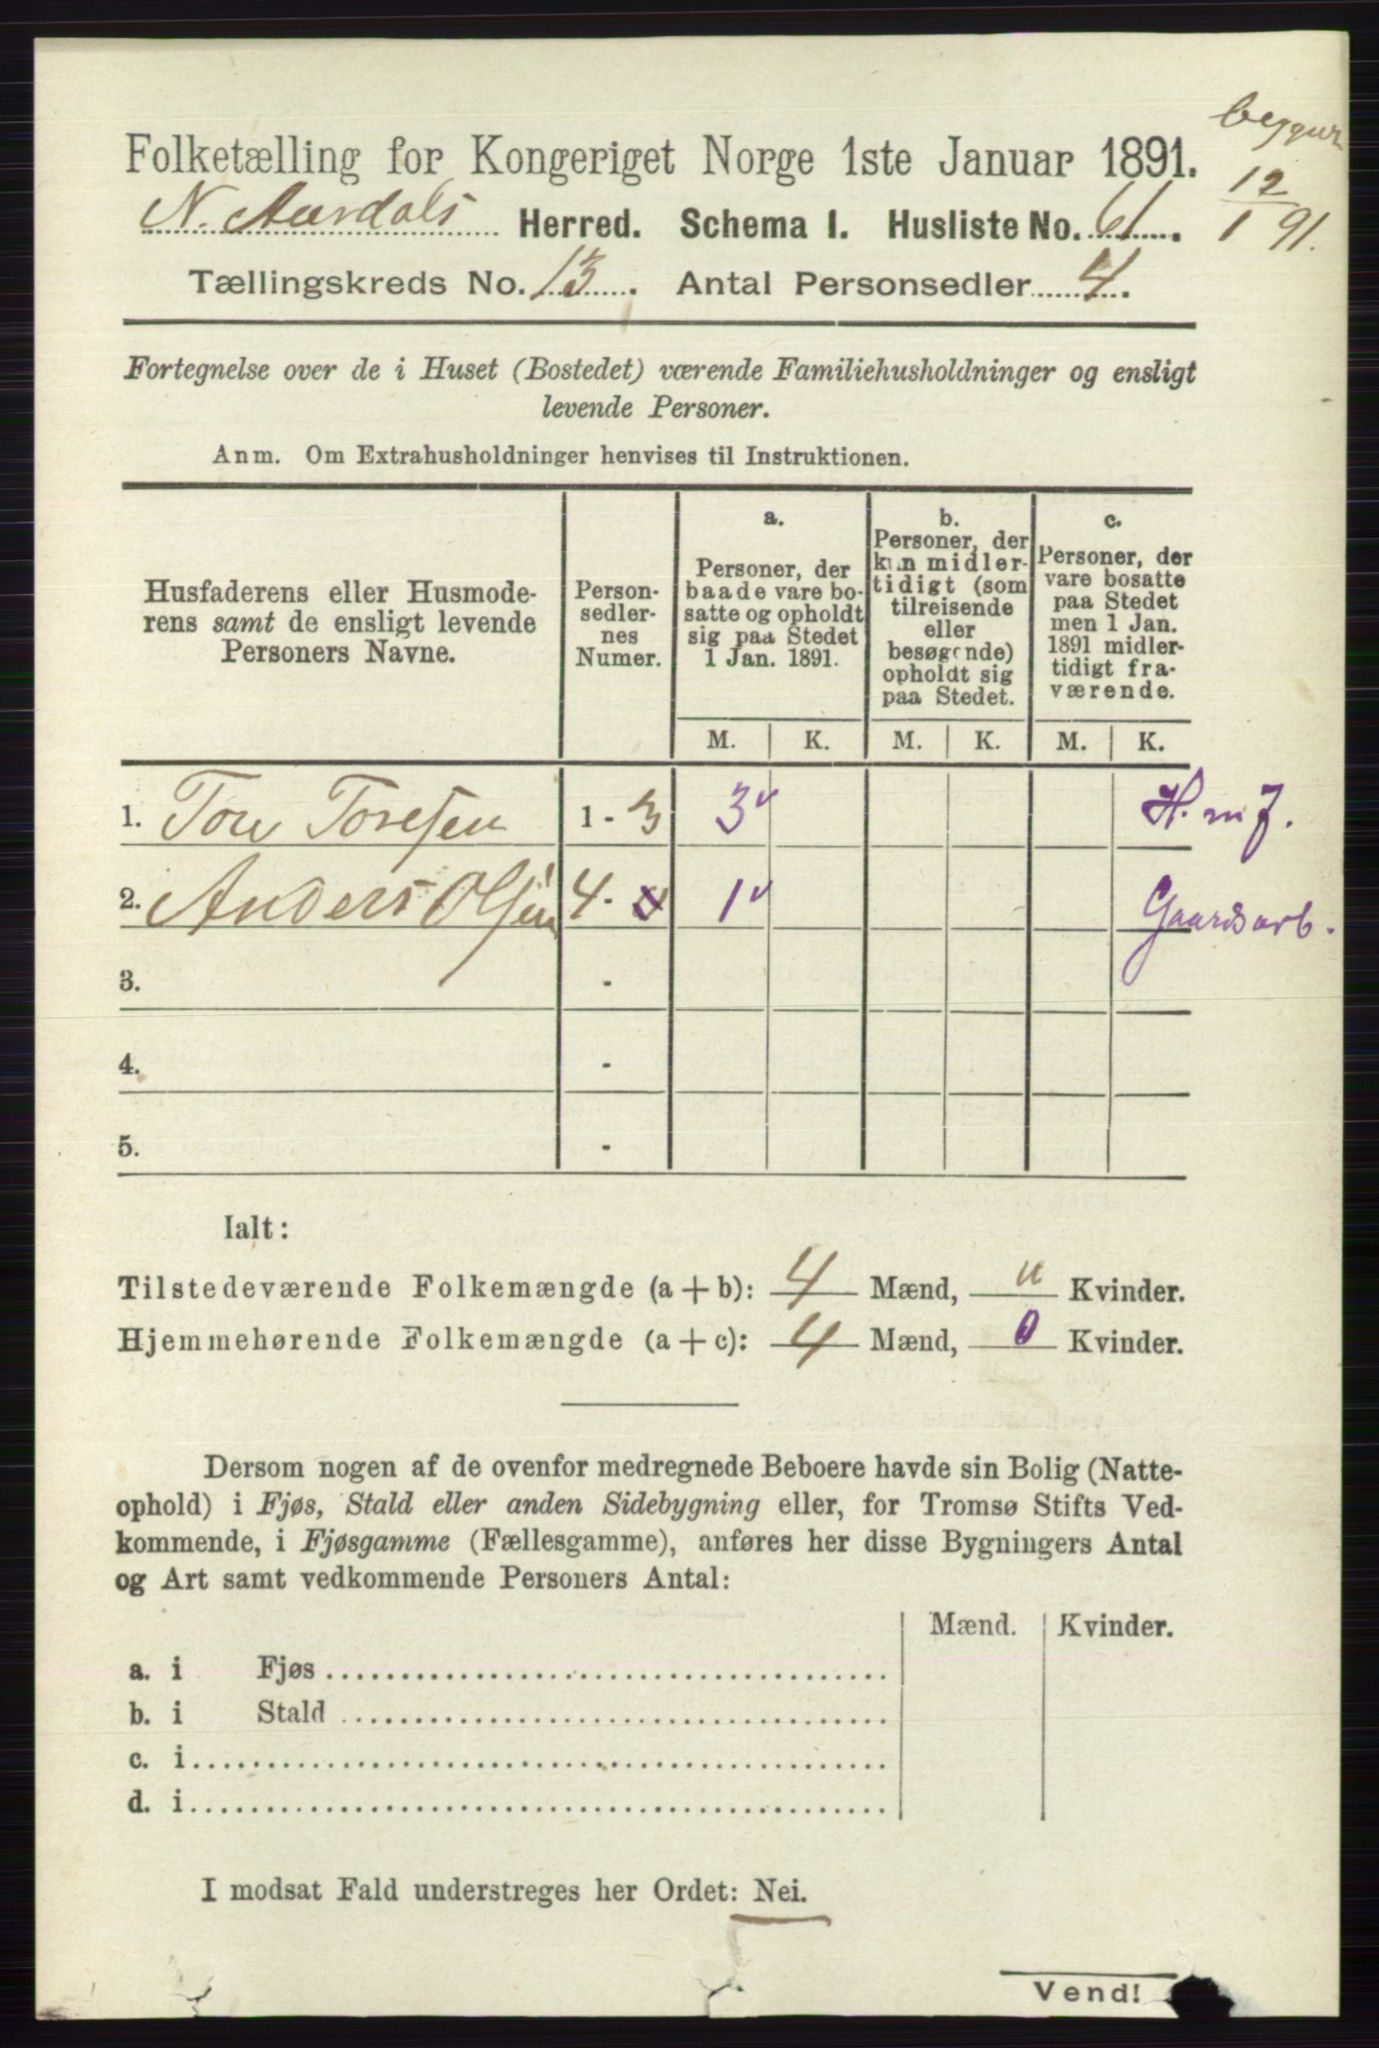 Folketælling for Kongeriget Norge 1ste Januar 1891.
12/1 91.
N. Aurdals Herred. Schema I. Husliste No. 61.
Tællingskreds No. 13. Antal Personsedler 4.
Fortegnelse over de i Huset (Bostedet) værende Familiehusholdninger og ensligt
levende Personer.
Anm. Om Extrahusholdninger henvises til Instruktionen.
Husfaderens eller Husmode-
rens samt de ensligt levende
Personers Navne.
Person-
sedler-
nes
Numer.
a.
Personer, der
baade vare bo-
satte og opholdt
sig paa Stedet
1 Jan. 1891.
b.
Personer, der
kun midler-
tidigt (som
tilreisende
eller
besøgende)
opholdt sig
paa Stedet.
c.
Personer, der
vare bosatte
paa Stedet
men 1 Jan.
1891 midler-
tidigt fra-
værende.
M. K. M. K. M. K.
1. Tore Toresen 1 - 3 3 H. m J.
2. Anders Olsen 4 - 4 1 Gaardsarb.
3. -
4. -
5. -
Ialt:
Tilstedeværende Folkemængde (a + b): 4 Mænd, " Kvinder.
Hjemmehørende Folkemængde (a + c): 4 Mænd, 0 Kvinder.
Dersom nogen af de ovenfor medregnede Beboere havde sin Bolig (Natte-
ophold) i Fjøs, Stald eller anden Sidebygning eller, for Tromsø Stifts Ved-
kommende, i Fjøsgamme (Fællesgamme), anføres her disse Bygningers Antal
og Art samt vedkommende Personers Antal:
Mænd. Kvinder.
a. i Fjøs
b. i Stald
c. i
d. i
I modsat Fald understreges her Ordet: Nei.
Vend!